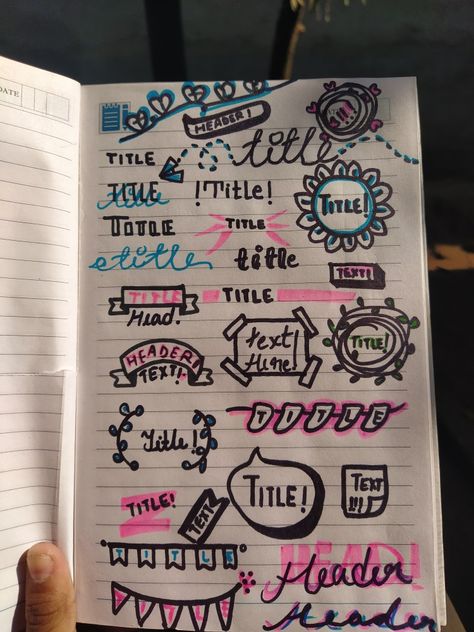 DATE
HEADER!
!!!
TITLE
title
TITLE
title
!Title!
TITLE!
TITLE
TITLE
title
title
TEXT!
TITLE
Head.
TITLE
HEADER!
TEXT!
Text
Here!
TITLE!
Title!
TITLE
TITLE!
TEXT
!!!
TITLE!
TEXT
TITLE
HEAD!
Header
TITLE
Header